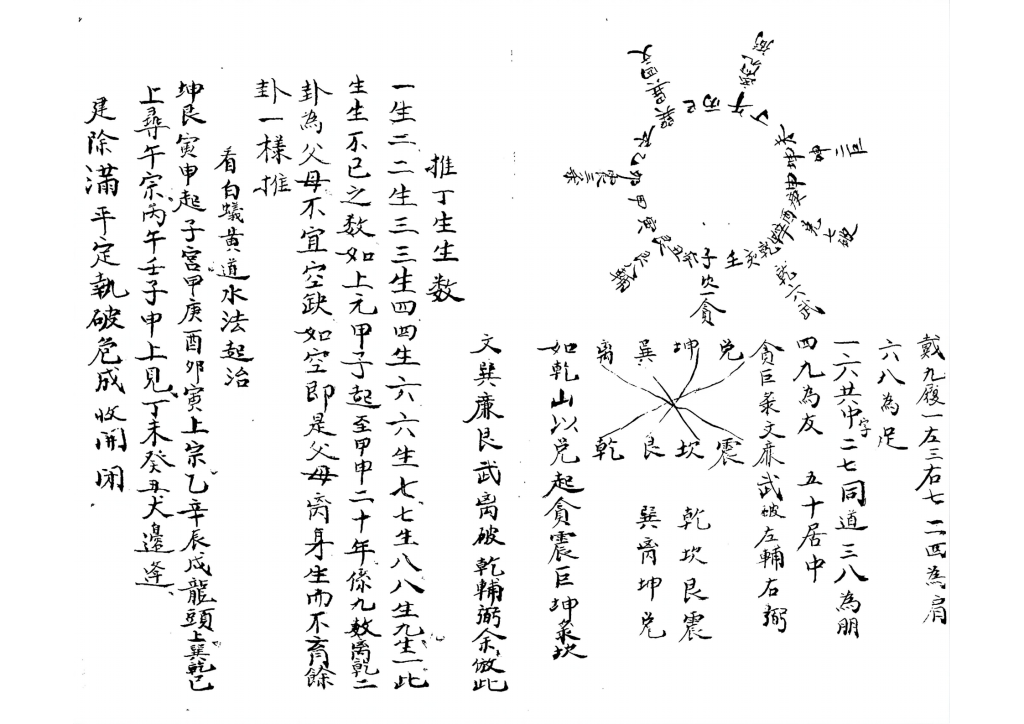 弼
九紫
四巽文
巽
巳
丙
午
丁
未
坤
申
庚
酉
辛
戌
乾
亥
壬
子
癸
丑
艮
寅
甲
卯
乙
辰
坤二巨
兌七破
乾六武
坎一貪
艮八輔
震三祿
戴九履一左三右七 二四為肩
六八為足
一六共中字 二七同道三八為朋
四九為友 五十居中
貪巨彔文廉武破左輔右弼
兌 坤 巽 离
震 坎 艮 乾
乾坎艮震
巽离坤兌
如乾山以兌起貪震巨坤彔坎
文巽廉艮武离破乾輔弼余倣此
推丁生生数
一生二二生三三生四四生六六生七七生八八生九九生一此
生生不已之数如上元甲子起至甲申二十年係九数离乾二
卦為父母不宜空缺如空即是父母离身生而不育餘
卦一樣推
看白蟻黄道水法起治
坤艮寅申起子宮甲庚酉卯寅上宗乙辛辰戌龍頭上巽乾巳
上尋午宗丙午壬子申上見丁未癸丑犬邊逢
建除滿平定執破危成收開閉